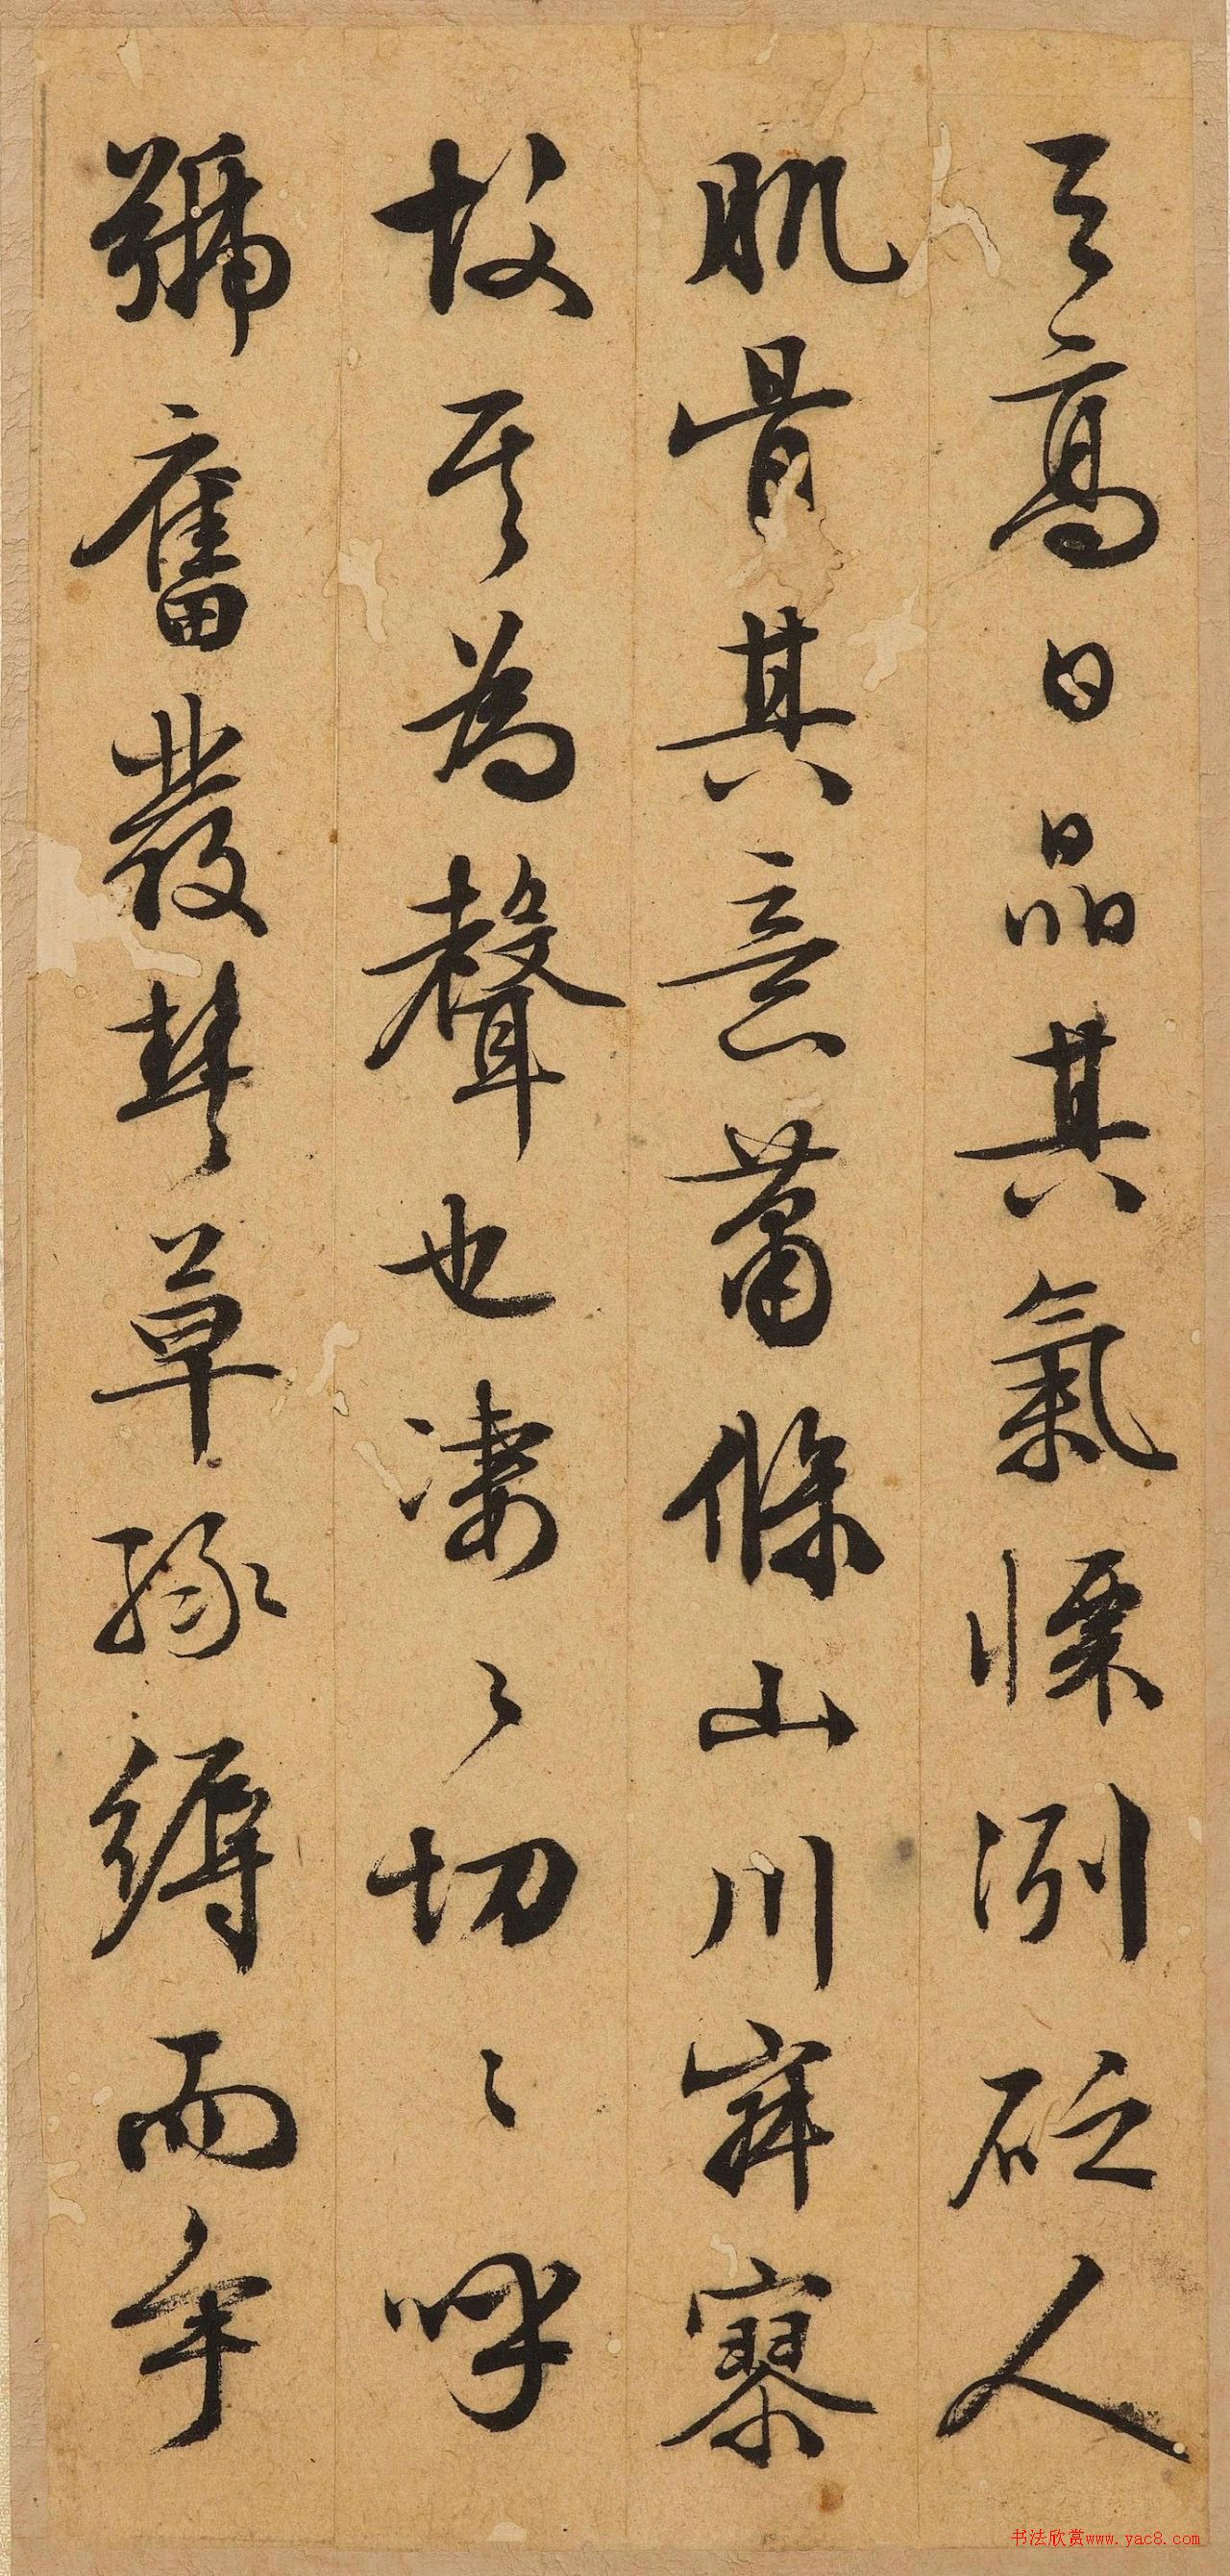 天高日晶其氣慄冽砭人
肌骨其意蕭條山川寂寥
故其為聲也淒〻切〻呼
號奮發豐草綠縟而爭
书法欣赏www.yac8.com